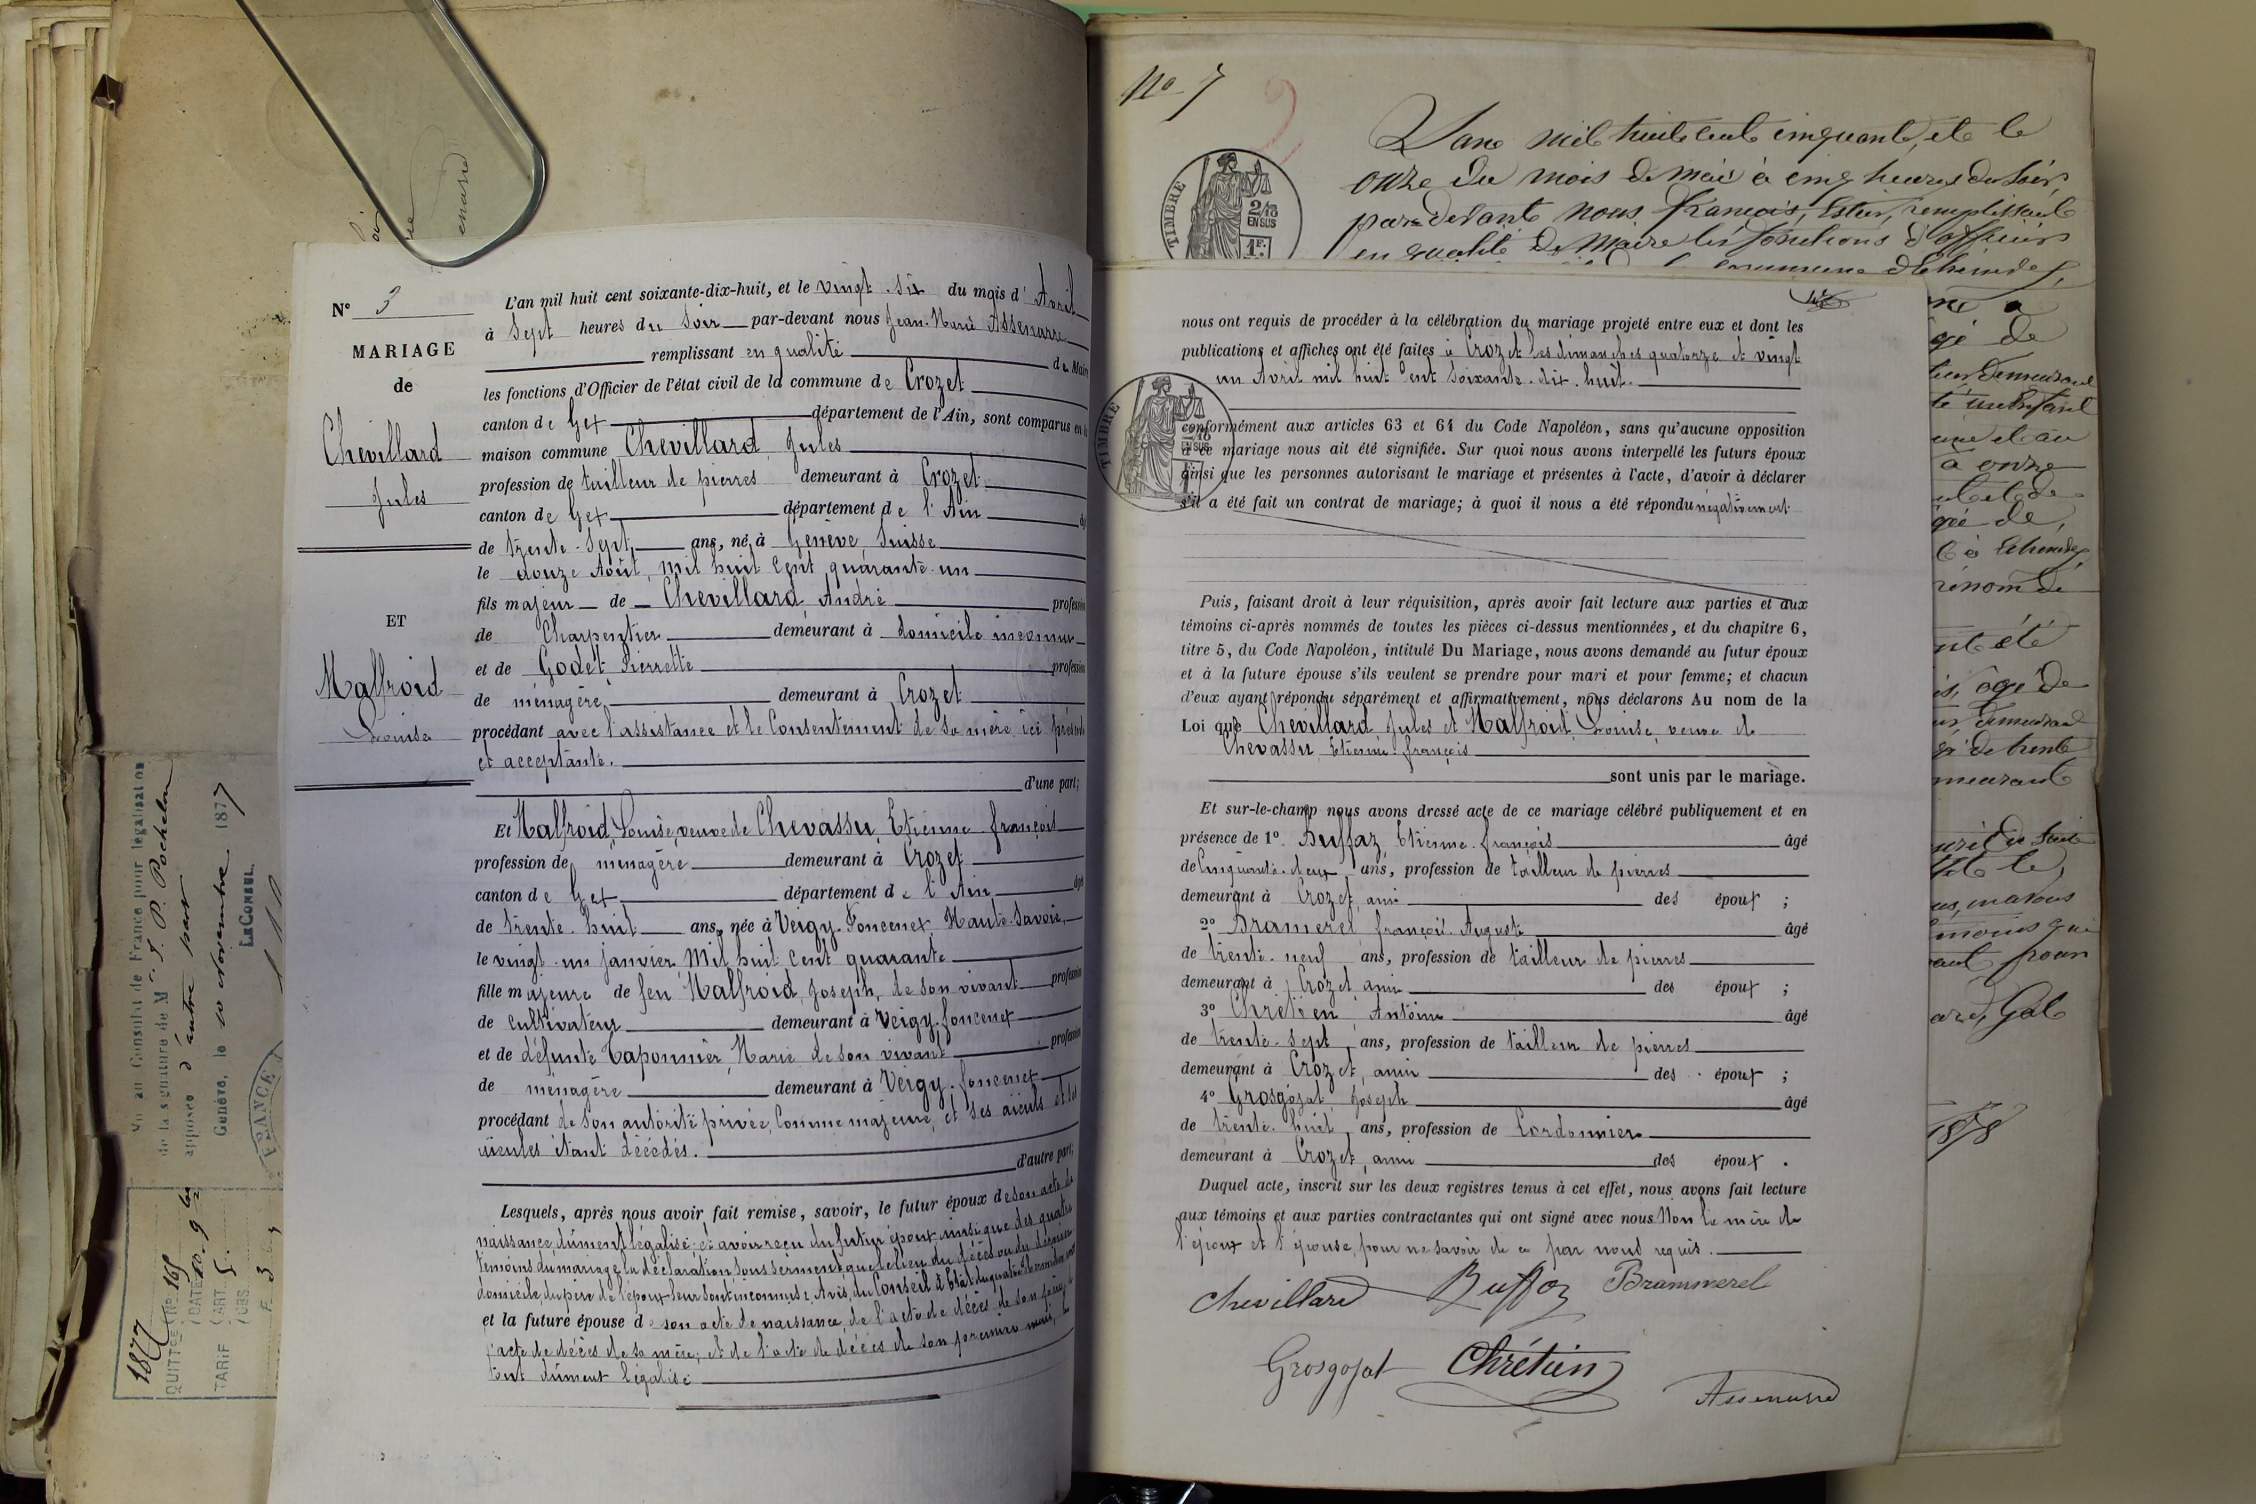 N° 3
MARIAGE
de
Chevillard
Jules
ET
Malfroid
Louise
L'an mil huit cent soixante-dix-huit, et le vingt-six du mois d'Avril
à Sept heures du Soir par-devant nous Jean-Marie Assenarre
remplissant en qualité de Maire
les fonctions d'Officier de l'état civil de la commune de Crozet
canton de Gex département de l'Ain, sont comparus en la
maison commune Chevillard Jules
profession de tailleur de pierres demeurant à Crozet
canton de Gex département de l'Ain
de trente-sept ans, né à Genève, Suisse
le douze Août, mil huit cent quarante-un
fils majeur de Chevillard, André profession
de Charpentier demeurant à domicile inconnu
et de Godet, Pierrette profession
de ménagère demeurant à Crozet
procédant avec l'assistance et le Consentement de sa mère ici présente
et acceptante.
d'une part;
Et Malfroid, Louise, veuve de Chevassu, Etienne françois
profession de ménagère demeurant à Crozet
canton de Gex département de l'Ain âgé
de trente-huit ans, née à Veigy-Foncenex, Haute-Savoie,
le vingt-un janvier, Mil huit cent quarante
fille majeure de feu Malfroid, Joseph, de son vivant profession
de cultivateur demeurant à Veigy-foncenex
et de défunte Taponnier, Marie de son vivant profession
de ménagère demeurant à Veigy-foncenex
procédant de son autorité privée, Comme majeure, et ses aïeuls et les
aïeules étant décédés.
d'autre part;
Lesquels, après nous avoir fait remise, savoir, le futur époux de son acte de
naissance, dûment légalisé; et avoir reçu du futur époux ainsi que des quatre
témoins du mariage la déclaration sous serment que le lieu du décès ou du dernier
domicile, du père de l'époux leur sont inconnus, Avis, du Conseil d'Etat du quatre
et la future épouse de son acte de naissance, de l'acte de décès de son père,
l'acte de décès de sa mère; et de l'acte de décès de son premier mari,
tout dûment légalisé
Vu au Consulat de France pour légalisation
de la signature de Mr J. P. Pochelon
apposée d'autre part
Genève, le 10 Novembre 1877
LE CONSUL,
FRANCE
1877
QUITTCE No 165
DATE 10. 9
TARIF ART. 5.
No 7
2
TIMBRE
2/10
EN SUS
1F.
L'an mil huit cent cinquante, et le
onze du mois de mai à cinq heures du soir,
par-devant nous françois, Ester, remplissant
en qualité de Maire les fonctions d'officier
commune d'Echenevex,
nous ont requis de procéder à la célébration du mariage projeté entre eux et dont les
publications et affiches ont été faites à Crozet les dimanches quatorze et vingt
un Avril mil huit Cent Soixante-dix-huit.
TIMBRE
EN SUS
conformément aux articles 63 et 64 du Code Napoléon, sans qu'aucune opposition
à ce mariage nous ait été signifiée. Sur quoi nous avons interpellé les futurs époux
ainsi que les personnes autorisant le mariage et présentes à l'acte, d'avoir à déclarer
s'il a été fait un contrat de mariage; à quoi il nous a été répondu négativement
Puis, faisant droit à leur réquisition, après avoir fait lecture aux parties et aux
témoins ci-après nommés de toutes les pièces ci-dessus mentionnées, et du chapitre 6,
titre 5, du Code Napoléon, intitulé Du Mariage, nous avons demandé au futur époux
et à la future épouse s'ils veulent se prendre pour mari et pour femme; et chacun
d'eux ayant répondu séparément et affirmativement, nous déclarons Au nom de la
Loi que Chevillard, Jules et Malfroid, Louise, veuve de
Chevassu, Etienne-françois
sont unis par le mariage.
Et sur-le-champ nous avons dressé acte de ce mariage célébré publiquement et en
présence de 1° Buffaz Etienne-françois âgé
de Cinquante-deux ans, profession de tailleur de pierres
demeurant à Crozet, ami des époux ;
2° Bramerel, françois-Auguste âgé
de trente-neuf ans, profession de tailleur de pierres
demeurant à Crozet, ami des époux ;
3° Chrétien, Antoine âgé
de trente-sept ans, profession de tailleur de pierres
demeurant à Crozet, ami des époux ;
4° Grosgojat, Joseph âgé
de trente-huit ans, profession de Cordonnier
demeurant à Crozet, ami des époux .
Duquel acte, inscrit sur les deux registres tenus à cet effet, nous avons fait lecture
aux témoins et aux parties contractantes qui ont signé avec nous. Non la mère de
l'époux et l'épouse, pour ne savoir de ce par nous requis.
Chevillard Buffaz Bramerel
Grosgojat Chrétien
Assenarre
gé de
demeurant
à onze
gée de,
prénom de
ont été
âgé de
de trente
demeurant
pour
1878